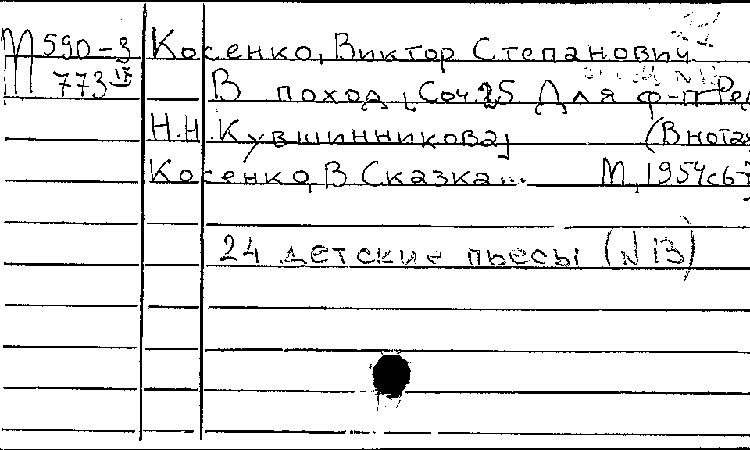 М 590-3 Косенко, Виктор Степанович
773 IV В поход, Соч. 25 Для ф-п Ред
Н.Н. Кувшинникова, (В нотах
Косенко, В Сказка... М, 1954 с 6-7
24 детские пьесы (N 13)